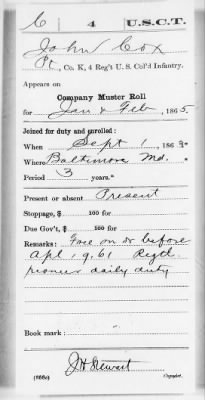 C 4 U.S.C.T.
John Cox
Pt, Co. K, 4 Reg't U. S. Col'd Infantry.
Appears on
Company Muster Roll
for Jan & Feb, 1865.
Joined for duty and enrolled:
When Sept 1, 186
Where Baltimore Md.
Period 3 years.*
Present or absent Present
Stoppage, $ 100 for
Due Gov't, $ 100 for
Remarks: Free on or before
Apl. 19.61 Regd
pioneer daily duty
Book mark:
J H Stewart
(858c) Copyist.